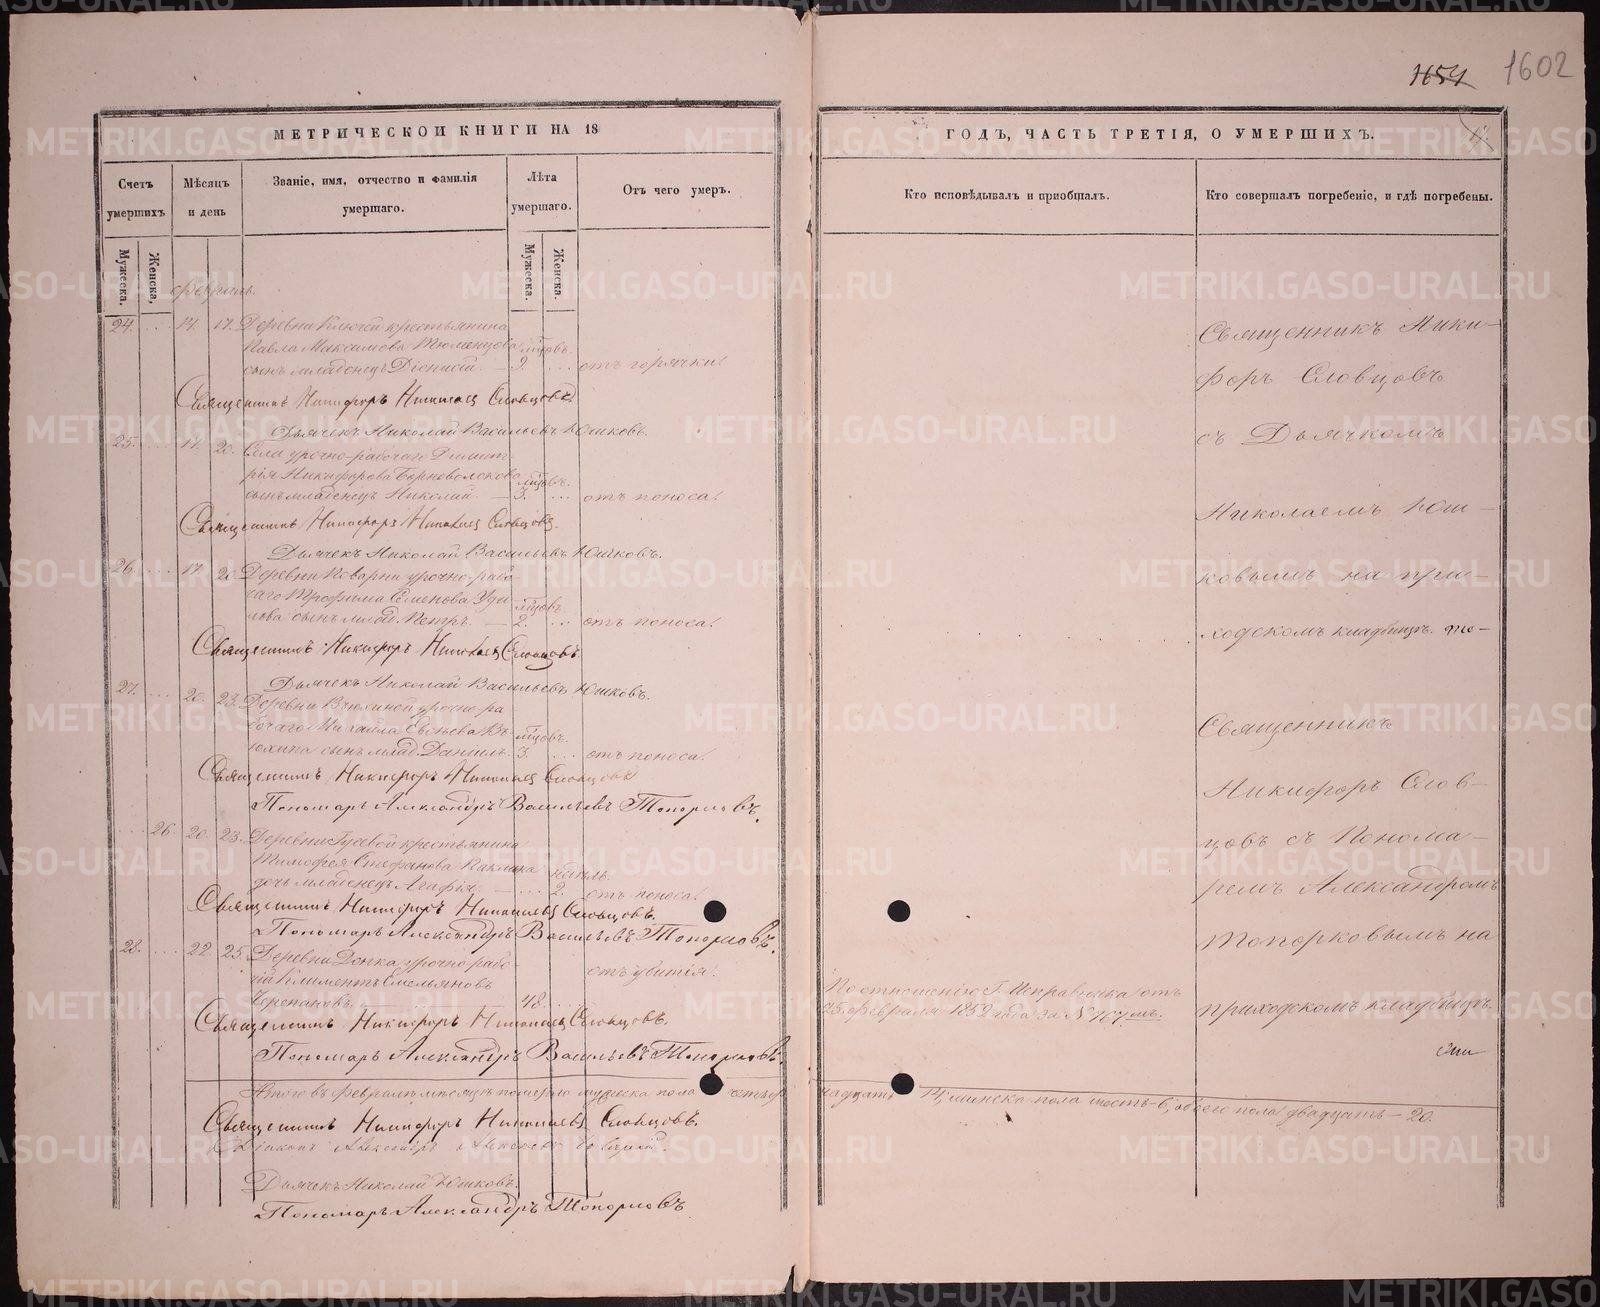 1654 1602
МЕТРИЧЕСКОИ КНИГИ НА 18
ГОДЪ, ЧАСТЬ ТРЕТІЯ, О УМЕРШИХЪ.
Счетъ умершихъ
Мѣсяцъ и день
Званіе, имя, отчество и фамилія умершаго.
Лѣта умершаго.
Отъ чего умеръ.
Кто исповѣдывалъ и пріобщалъ.
Кто совершалъ погребеніе, и гдѣ погребены.
Мужеска.
Женска,
Мужеска.
Женска.
Февраль.
24. 14. 17. Деревни Ключей крестьянина
Павла Максимова Тюменцова мцовъ.
сынъ младенецъ Діонисій. — 9. отъ горячки.
Священникъ Никифоръ Николаевъ Словцовъ
Дьячекъ Николай Васильевъ Юшковъ.
25. 17. 20. Села урочно-рабочаго Димит-
рія Никифорова Черноволокова мцовъ.
сынъ младенецъ Николай. — 3. отъ поноса.
Священникъ Никифоръ Николаевъ Словцовъ.
Дьячекъ Николай Васильевъ Юшковъ.
26. 17. 20. Деревни Поварни урочно-рабо-
чаго Трофима Семенова мцовъ.
сынъ млад. Петръ. — 2. отъ поноса.
Священникъ Никифоръ Николаевъ Словцовъ.
Дьячекъ Николай Васильевъ Юшковъ.
27. 20. 23. Деревни Вьюхиной урочно-ра-
бочаго Михаила Евсѣева Вь- мцовъ.
юхина сынъ млад. Даніилъ. 3. отъ поноса.
Священникъ Никифоръ Николаевъ Словцовъ
Пономарь Александръ Васильевъ Топорковъ.
26. 20. 23. Деревни Гусевой крестьянина
Тимофея Стефанова Паклина недѣль.
дочь младенецъ Агафія. — 2. отъ поноса.
Священникъ Никифоръ Николаевъ Словцовъ.
Пономарь Александръ Васильевъ Топорковъ.
28. 22. 25. Деревни урочно-рабо-
чій Климентъ Емельяновъ отъ убитія.
Черепановъ. — 48.
Священникъ Никифоръ Николаевъ Словцовъ.
Пономарь Александръ Васильевъ Топорковъ.
Итого въ февралѣ мѣсяцѣ померло мужеска пола четыр
надцать 14, женска пола шесть-6, обоего пола двадцать - 20.
Священникъ Никифоръ Николаевъ Словцовъ.
Діаконъ Александръ
Дьячекъ Николай Юшковъ.
Пономарь Александръ Топорковъ
По отношенію Г. Исправника отъ
25. февраля 1852 года за № 167мъ.
Священникъ Ники-
форъ Словцовъ
съ Дьячкомъ
Николаемъ Юш-
ковымъ на при-
ходскомъ кладбищѣ. то-
Священникъ
Никифоръ Слов-
цовъ съ Понома-
ремъ Александромъ
Топорковымъ на
приходскомъ кладбищѣ.